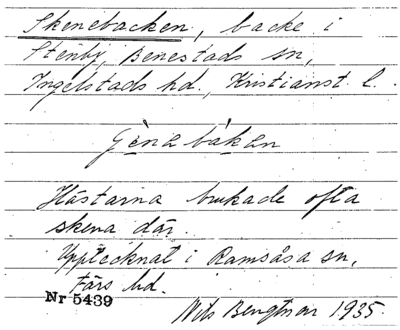 Skenebacken, backe i
Stenby, Benestads sn,
Ingelstads hd., Kristianst l.
Gena bakan
Hästarna brukade ofta
skena där.
Upptecknat i Ramsåsa sn,
Färs hd.
Nr 5439
Nils Bengtson 1935.